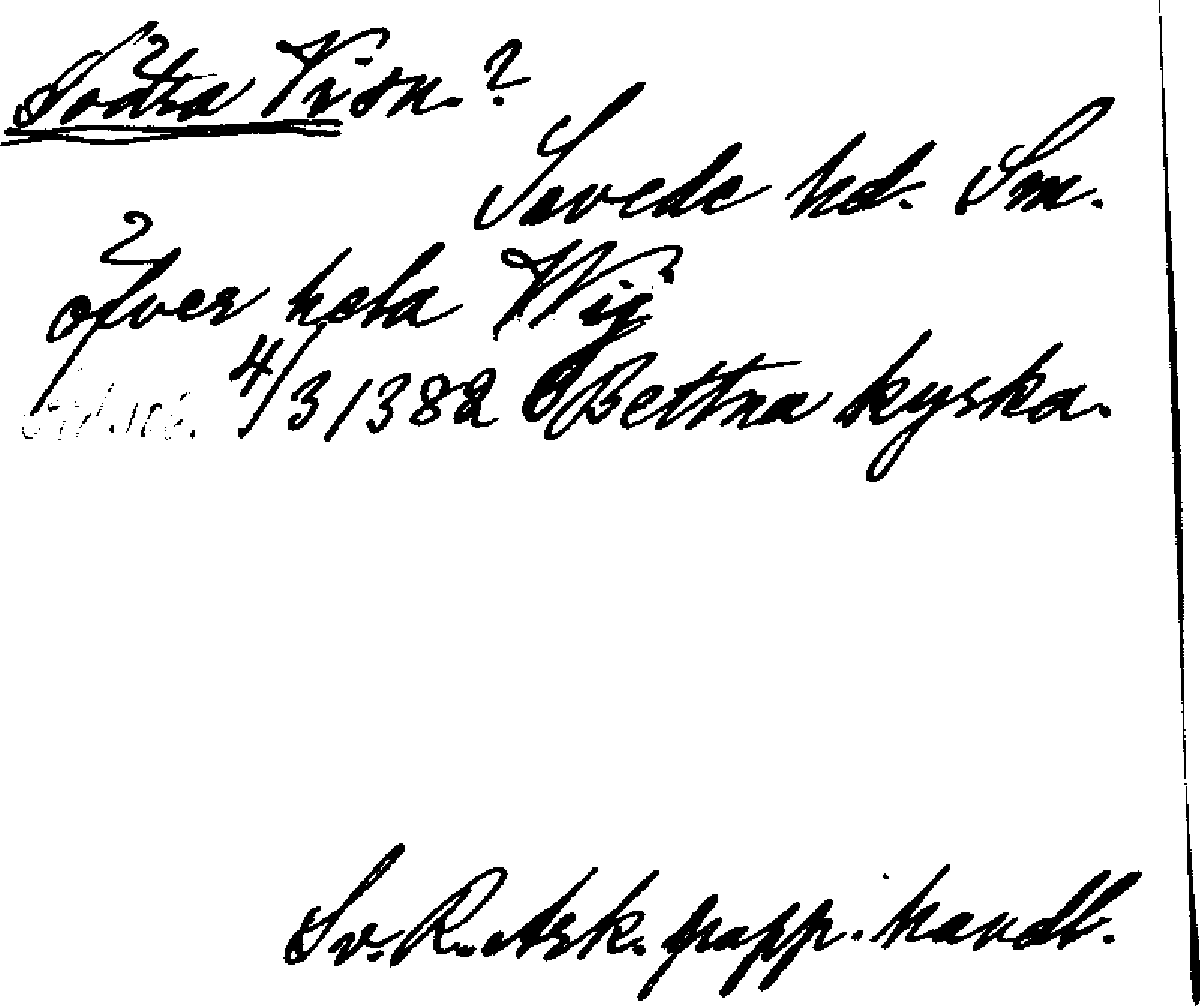 Södra Vi sn. ?
Sevede hd. Sm.
öfver hela Wij
4/3 1382 Bettna kyrka.
Sv. R. Ark. papp. handl.